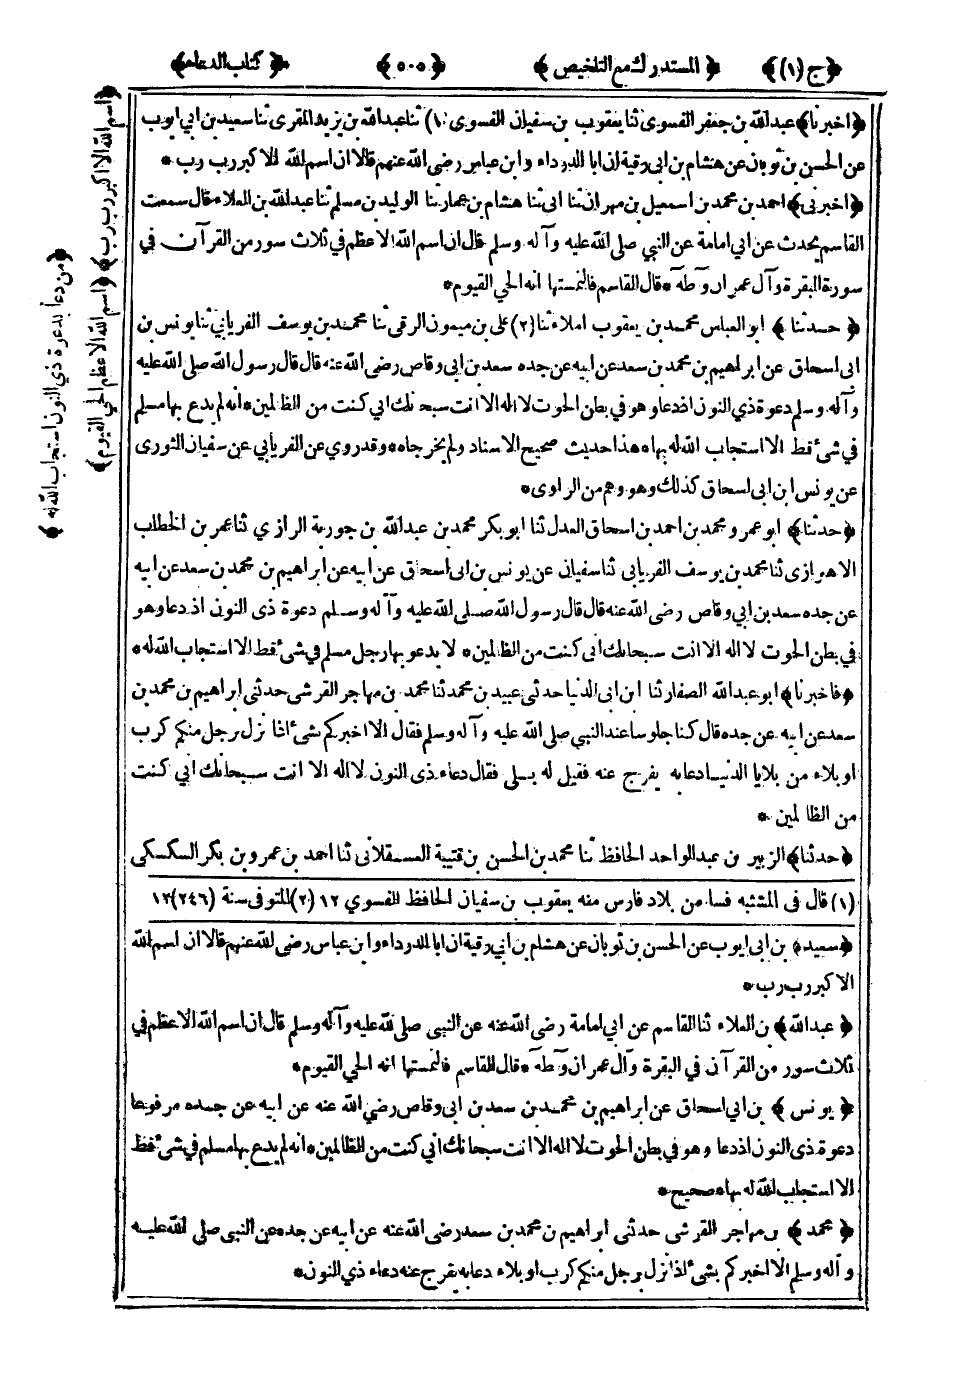 ﴿ج (١)﴾ ﴿المستدرك مع التلخيص﴾ ﴿٥٠٥﴾ ﴿كتاب الدعاء﴾
﴿اخبرنا﴾ عبدالله بن جعفر الفسوى ثنا يعقوب بن سفيان الفسوى (١) ثنا عبدالله بن يزيد المقرى ثنا سعيد بن ابى ايوب
عن الحسن بن ثوبان عن هشام بن ابى رقية ان ابا الدرداء وابن عباس رضى الله عنهم قالا ان اسم الله الاكبر رب رب *
﴿اخبرنى﴾ احمد بن محمد بن اسمعيل بن مهران ثنا ابى ثنا هشام بن عمار ثنا الوليد بن مسلم ثنا عبدالله بن العلاء قال سمعت
القاسم يحدث عن ابى امامة عن النبي صلى الله عليه وآله وسلم قال ان اسم الله الاعظم في ثلاث سور من القرآن في
سورة البقرة وآل عمران وطه * قال القاسم فالتمستها انه الحي القيوم *
﴿حدثنا﴾ ابو العباس محمد بن يعقوب املاء ثنا (٢) على بن ميمون الرقى ثنا محمد بن يوسف الفريابي ثنا يونس بن
ابى اسحاق عن ابراهيم بن محمد بن سعد عن ابيه عن جده سعد بن ابى وقاص رضى الله عنه قال قال رسول الله صلى الله عليه
وآله وسلم دعوة ذى النون اذ دعا وهو في بطن الحوت لا اله الا انت سبحانك انى كنت من الظالمين * انه لم يدع بها مسلم
في شئ قط الا استجاب الله له بها * هذا حديث صحيح الاسناد ولم يخرجاه * وقد روي عن الفريابي عن سفيان الثورى
عن يونس ابن ابى اسحاق كذلك وهو وهم من الراوى *
﴿حدثنا﴾ ابو عمرو محمد بن احمد بن اسحاق العدل ثنا ابو بكر محمد بن عبدالله بن جورية الرازي ثنا عمر بن الخطاب
الاهوازى ثنا محمد بن يوسف الفريابى ثنا سفيان عن يونس بن ابى اسحاق عن ابيه عن ابراهيم بن محمد بن سعد عن ابيه
عن جده سعد بن ابي وقاص رضى الله عنه قال قال رسول الله صلى الله عليه وآله وسلم دعوة ذى النون اذ دعا وهو
في بطن الحوت لا اله الا انت سبحانك انى كنت من الظالمين * لا يدعو بها رجل مسلم في شئ قط الا استجاب الله له *
﴿فاخبرنا﴾ ابو عبدالله الصفار ثنا ابن ابى الدنيا حدثنى عبيد بن محمد ثنا محمد بن مهاجر القرشى حدثنى ابراهيم بن محمد بن
سعد عن ابيه عن جده قال كنا جلوسا عند النبي صلى الله عليه وآله وسلم فقال الا اخبركم بشئ اذا نزل برجل منكم كرب
او بلاء من بلايا الدنيا دعا به يفرج عنه فقيل له بلى فقال دعاء ذى النون لا اله الا انت سبحانك انى كنت
من الظالمين *
﴿حدثنا﴾ الزبير بن عبد الواحد الحافظ ثنا محمد بن الحسن بن قتيبة العسقلانى ثنا احمد بن عمرو بن بكر السكسكى
(١) قال فى المشتبه فسا من بلاد فارس منه يعقوب بن سفيان الحافظ الفسوي ١٢ (٢) المتوفى سنة (٢٤٦) ١٢
﴿سعيد﴾ بن ابى ايوب عن الحسن بن ثوبان عن هشام بن ابي رقية ان ابا الدرداء وابن عباس رضى الله عنهم قالا ان اسم الله
الاكبر رب رب *
﴿عبدالله﴾ بن العلاء ثنا القاسم عن ابي امامة رضى الله عنه عن النبى صلى الله عليه وآله وسلم قال ان اسم الله الاعظم في
ثلاث سور من القرآن في البقرة وآل عمران وطه * قال القاسم فالتمستها انه الحي القيوم *
﴿يونس﴾ بن ابي اسحاق عن ابراهيم بن محمد بن سعد بن ابى وقاص رضي الله عنه عن ابيه عن جده مرفوعا
دعوة ذى النون اذ دعا وهو في بطن الحوت لا اله الا انت سبحانك اني كنت من الظالمين * انه لم يدع بها مسلم في شئ قط
الا استجاب الله له بها * صحيح *
﴿محمد﴾ بن مهاجر القرشى حدثنى ابراهيم بن محمد بن سعد رضى الله عنه عن ابيه عن جده عن النبى صلى الله عليه
وآله وسلم الا اخبركم بشئ اذا نزل برجل منكم كرب او بلاء دعا به يفرج عنه دعاء ذي النون *
﴿اسم الله الاكبر رب رب﴾ ﴿اسم الله الاعظم الحي القيوم﴾
﴿من دعا بدعوة ذي النون استجاب الله له﴾